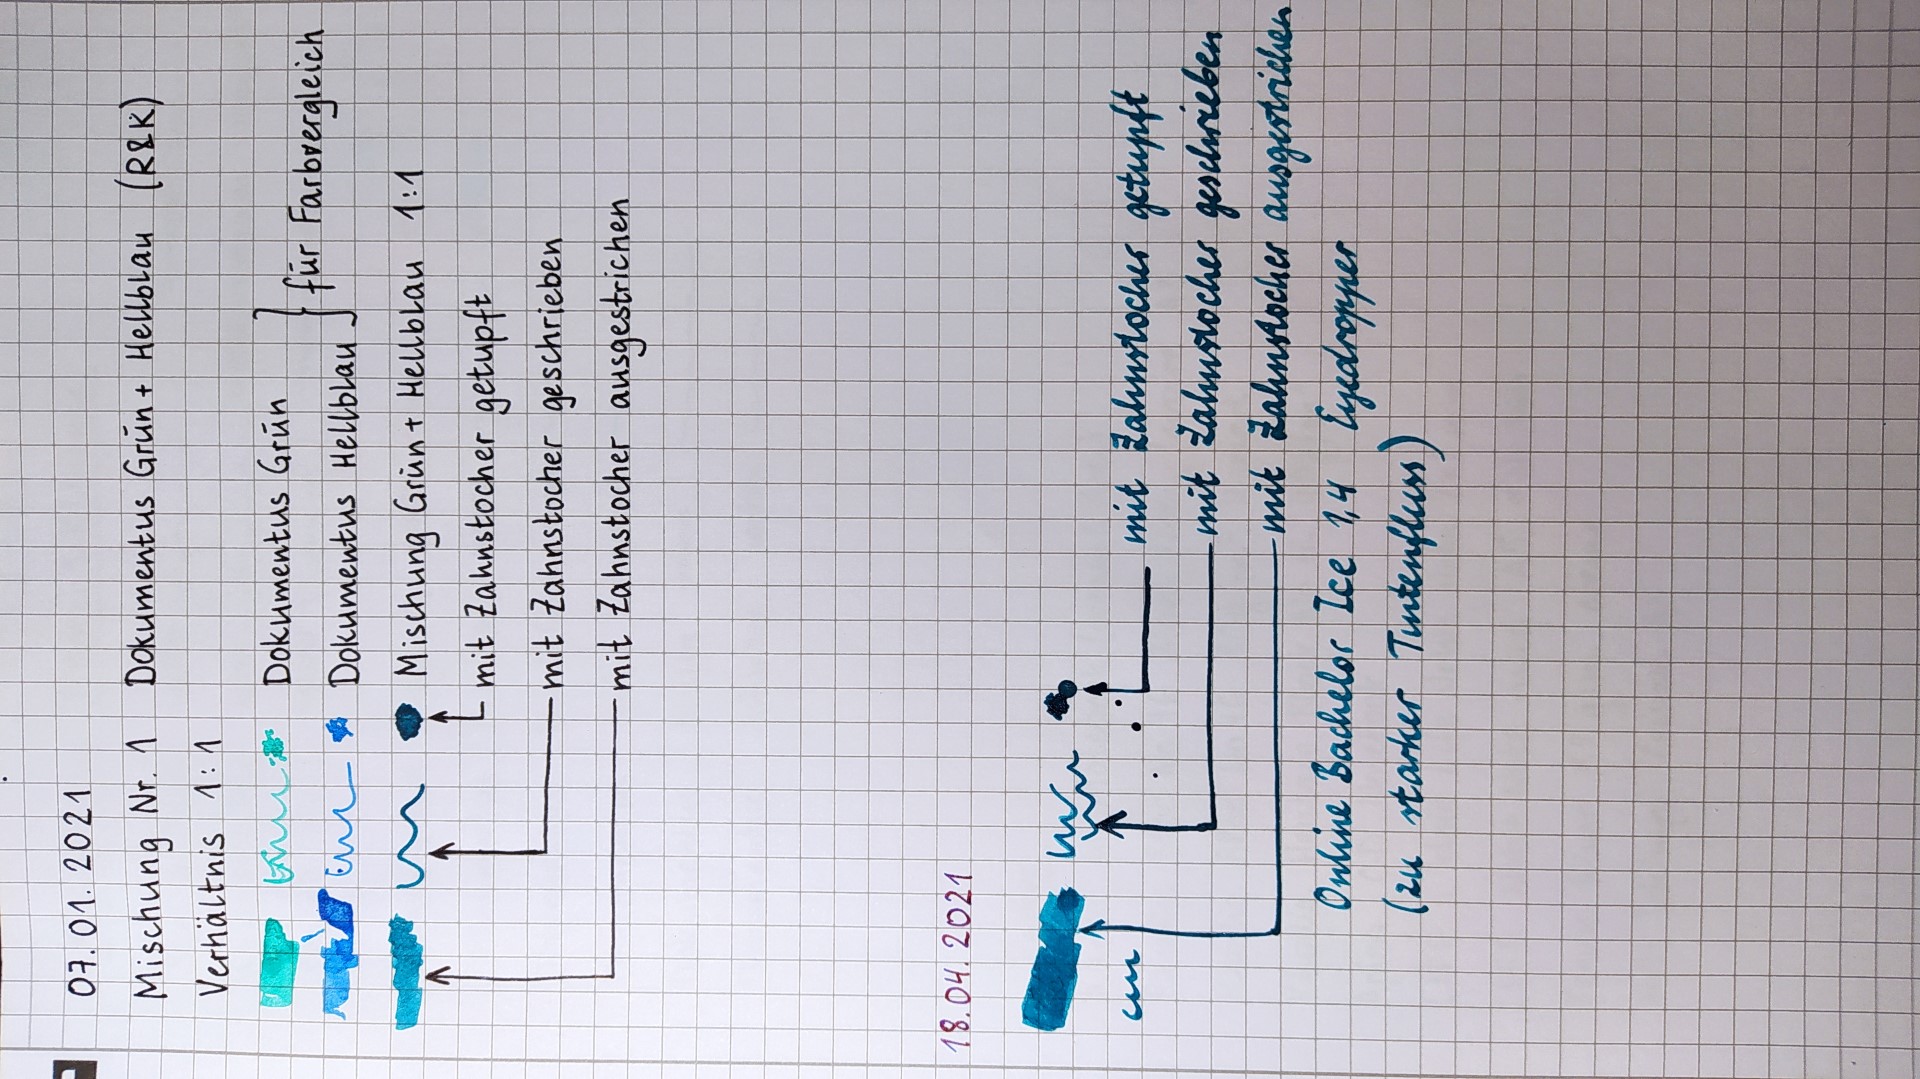 07.01.2021
Mischung Nr. 1 Dokumentus Grün + Hellblau (R&K)
Verhältnis 1:1
Dokumentus Grün
Dokumentus Hellblau } für Farbvergleich
Mischung Grün + Hellblau 1:1
mit Zahnstocher getupft
mit Zahnstocher geschrieben
mit Zahnstocher ausgestrichen
18.04.2021
mit Zahnstocher getupft
mit Zahnstocher geschrieben
mit Zahnstocher ausgestrichen
Online Bachelor Ice 1,4 Eyedropper
(zu starker Tintenfluss)